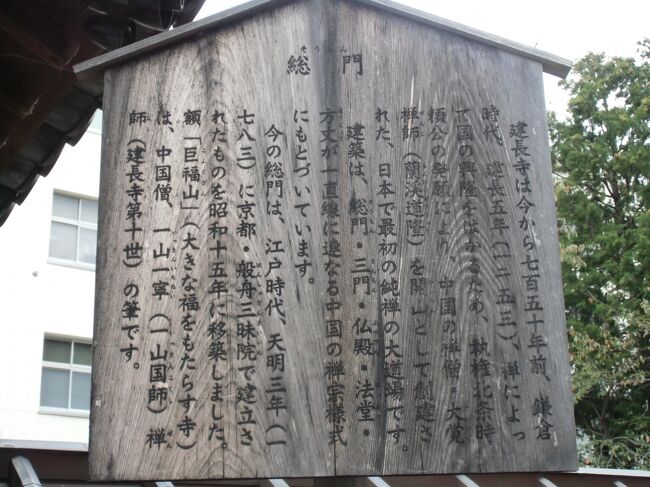 そうもん
総門
建長寺は今から七百五十年前、鎌倉
時代、建長五年（一二五三）、禅によっ
て国の興隆をはかるため、執権北条時
頼公の発願により、中国の禅僧・大覚
禅師（蘭渓道隆）を開山として創建さ
れた、日本で最初の純禅の大道場です。
建築は、総門・三門・仏殿・法堂・
方丈が一直線に連なる中国の禅宗様式
にもとづいています。
今の総門は、江戸時代、天明三年（一
七八三）に京都・般舟三昧院で建立さ
れたものを昭和十五年に移築しました。
額「巨福山」（大きな福をもたらす寺）
は、中国僧、一山一寧（一山国師）禅
師（建長寺第十世）の筆です。